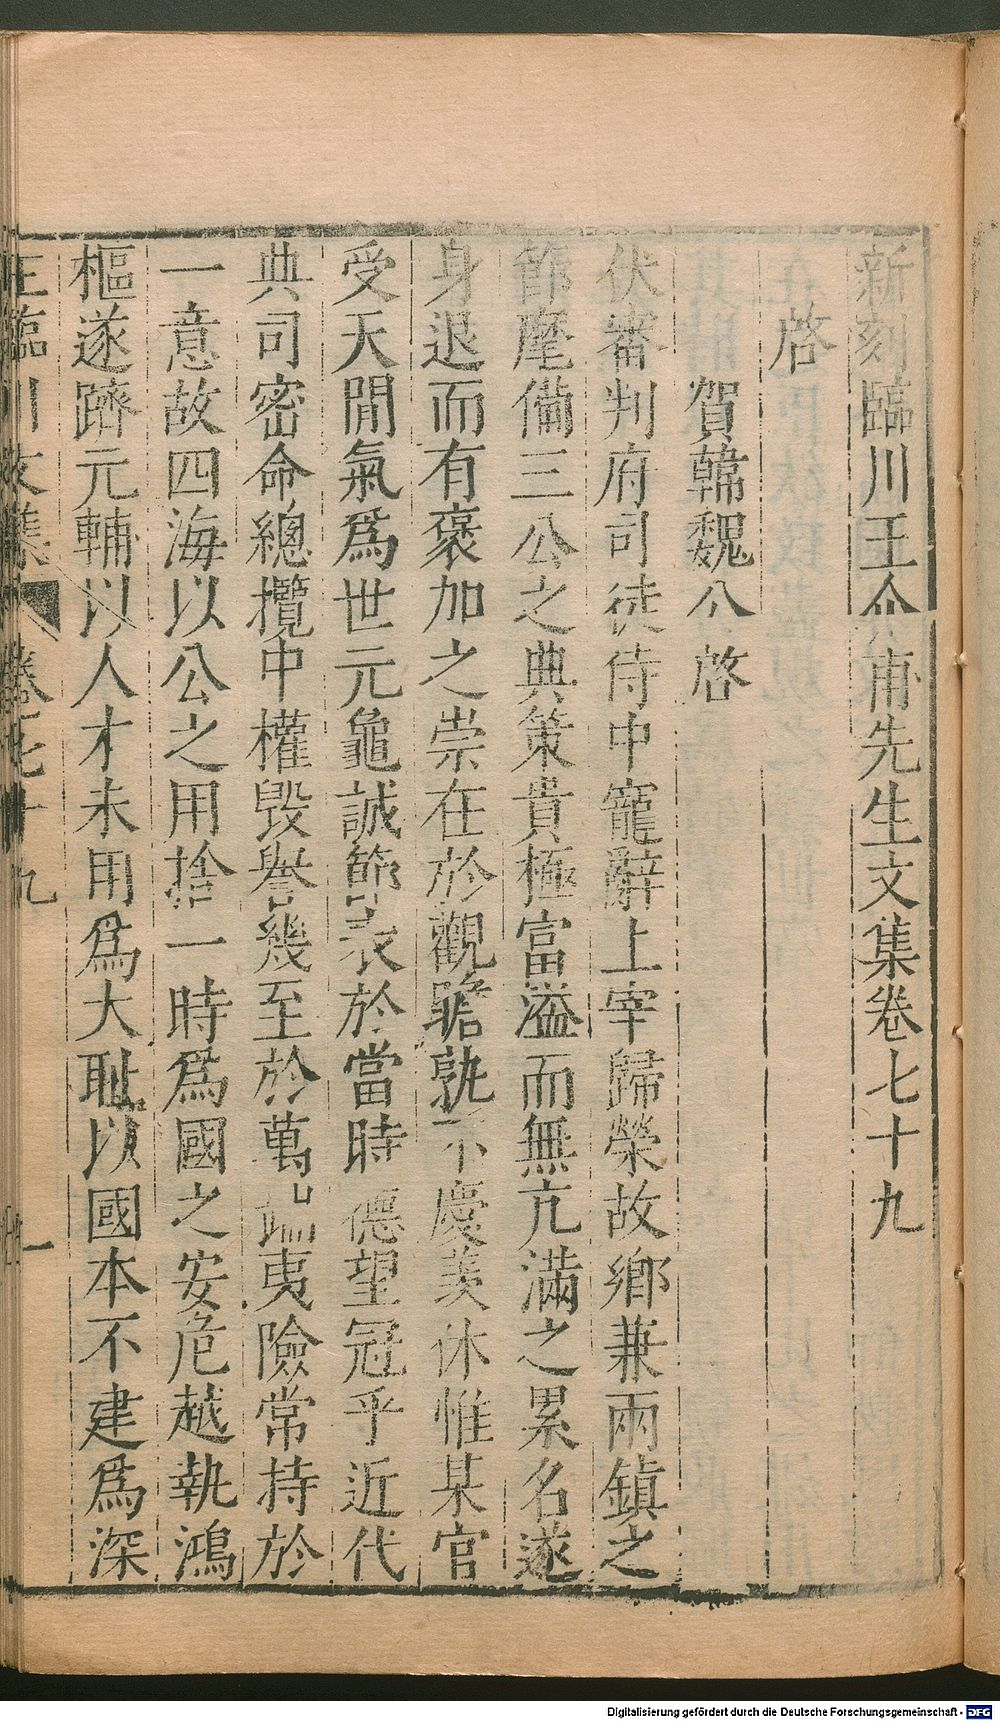 新刻臨川王介甫先生文集卷七十九
啓
賀韓魏公啓
伏審判府司徒侍中寵辭上宰歸榮故鄉兼兩鎮之
節麾備三公之典策貴極富溢而無亢滿之累名遂
身退而有褒加之崇在於觀瞻孰不慶美休惟某官
受天閒氣爲世元龜誠節表於當時德望冠乎近代
典司密命總攬中權毀譽幾至於萬端夷險常持於
一意故四海以公之用捨一時爲國之安危越執鴻
樞遂躋元輔以人才未用爲大耻以國本不建爲深
王臨川文集 卷七十九 一
Digitalisierung gefördert durch die Deutsche Forschungsgemeinschaft - DFG